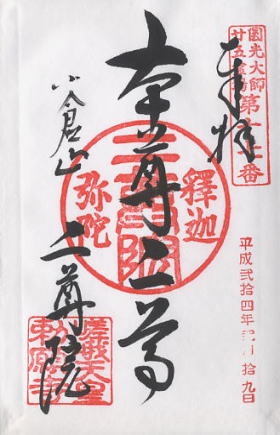 圓光大師
廿五霊場
第十七番
奉拝
平成弐拾四年 月拾九日
本尊二尊
釋迦
弥陀
小倉山
二尊院
嵯峨天皇
勅願寺